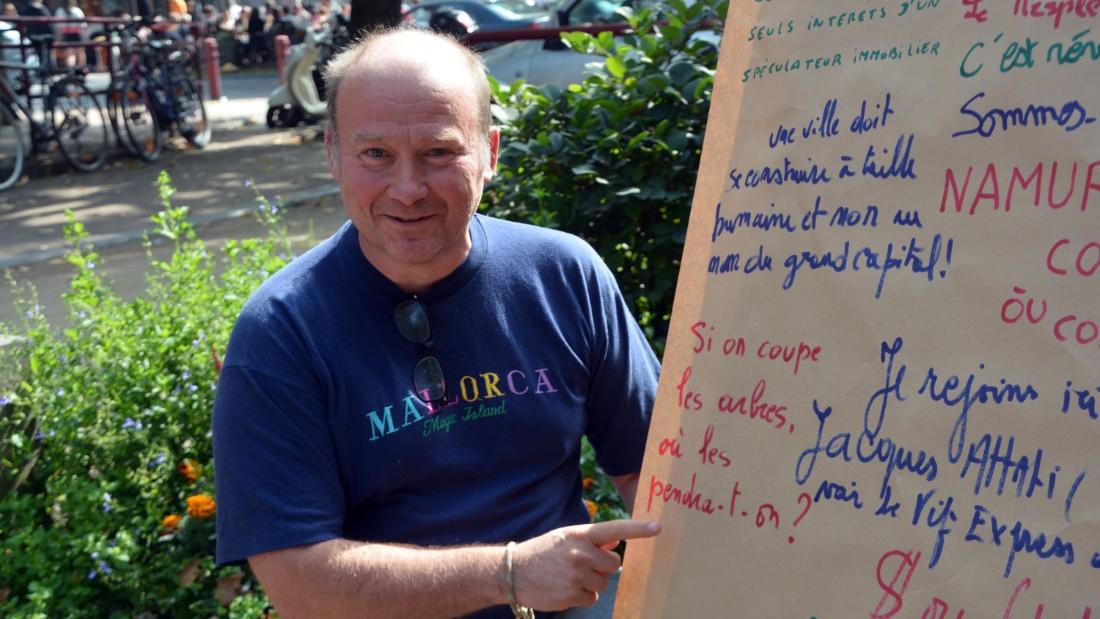 MALLORCA
Magic Island
SEULS INTERETS D'UN
SPÉCULATEUR IMMOBILIER
une ville doit
se construire à taille
humaine et non au
nom du grand capital!
Si on coupe
les arbres,
où les
pendra-t-on?
C'est
Sommes-
NAMUR
CO
ÒU CO
Je rejoins ici
Jacques Attali (
voir Le Vif Express